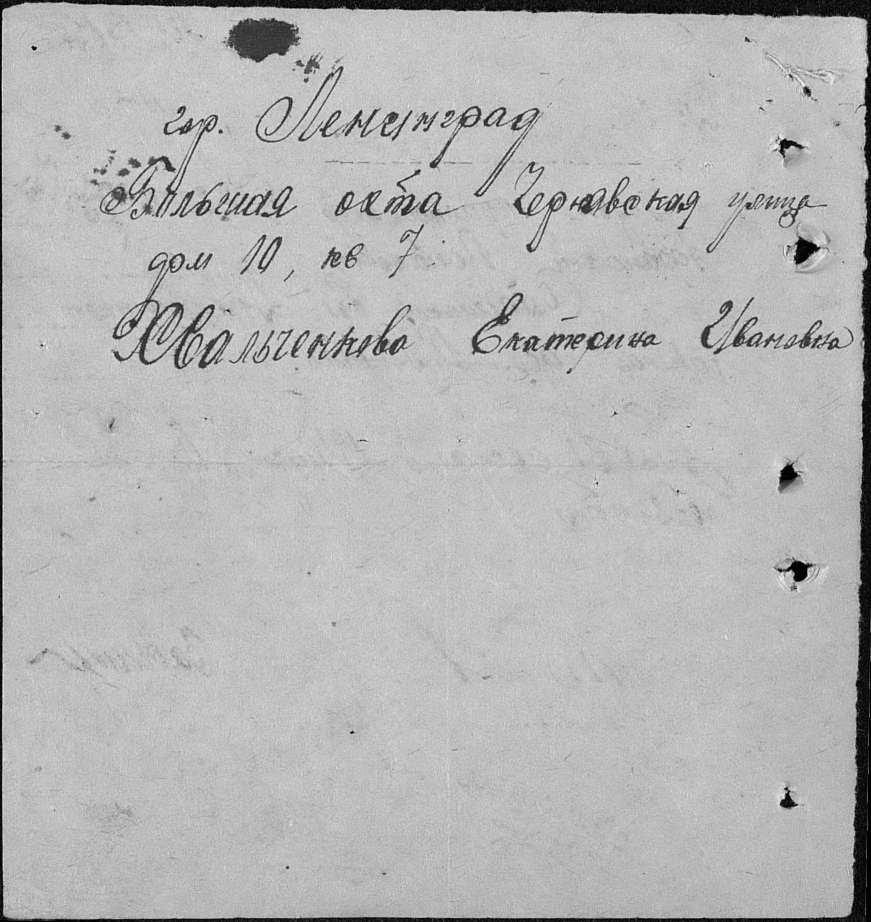 гор. Ленинград
Большая охта Чернявская улица
дом 10, кв 7
Хвальченкова Екатерина Ивановна